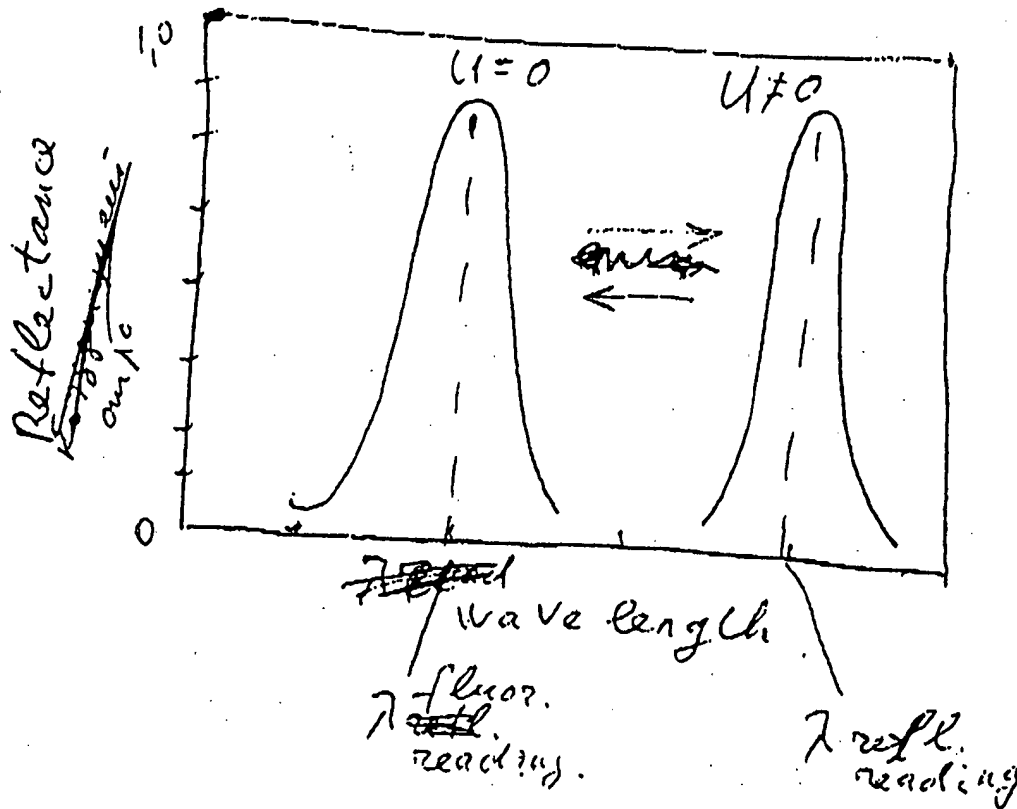 1,0
U = 0
U ≠ 0
Reflectance
0
wave length
λ fluor.
reading.
λ refl.
reading